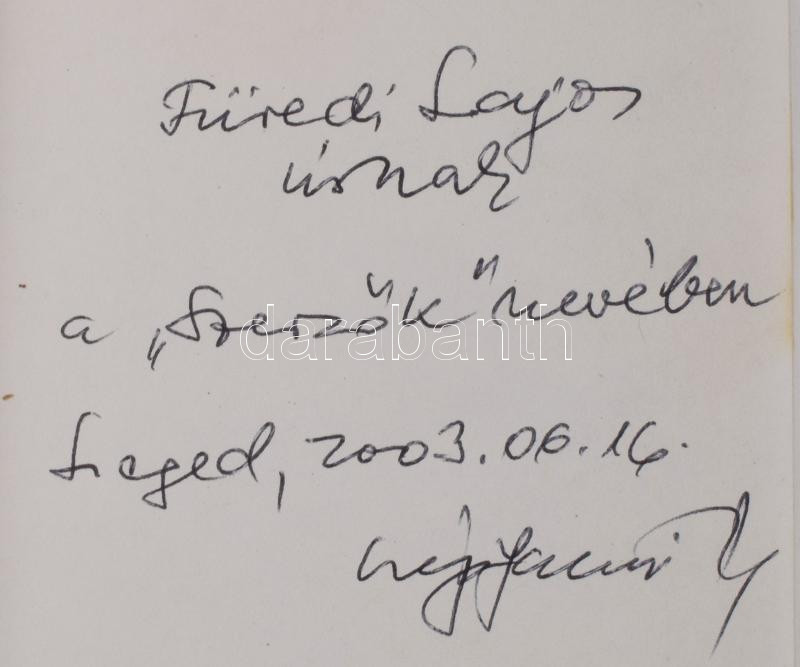 Füredi Lajos
úrnak
a „Szerzők" nevében
darabanth
Szeged, 2003.06.16.